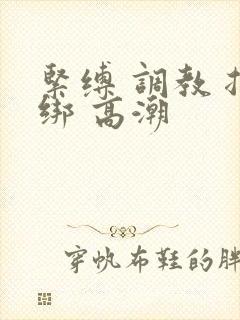 緊縛 調教
綁 高潮
穿帆布鞋的胖